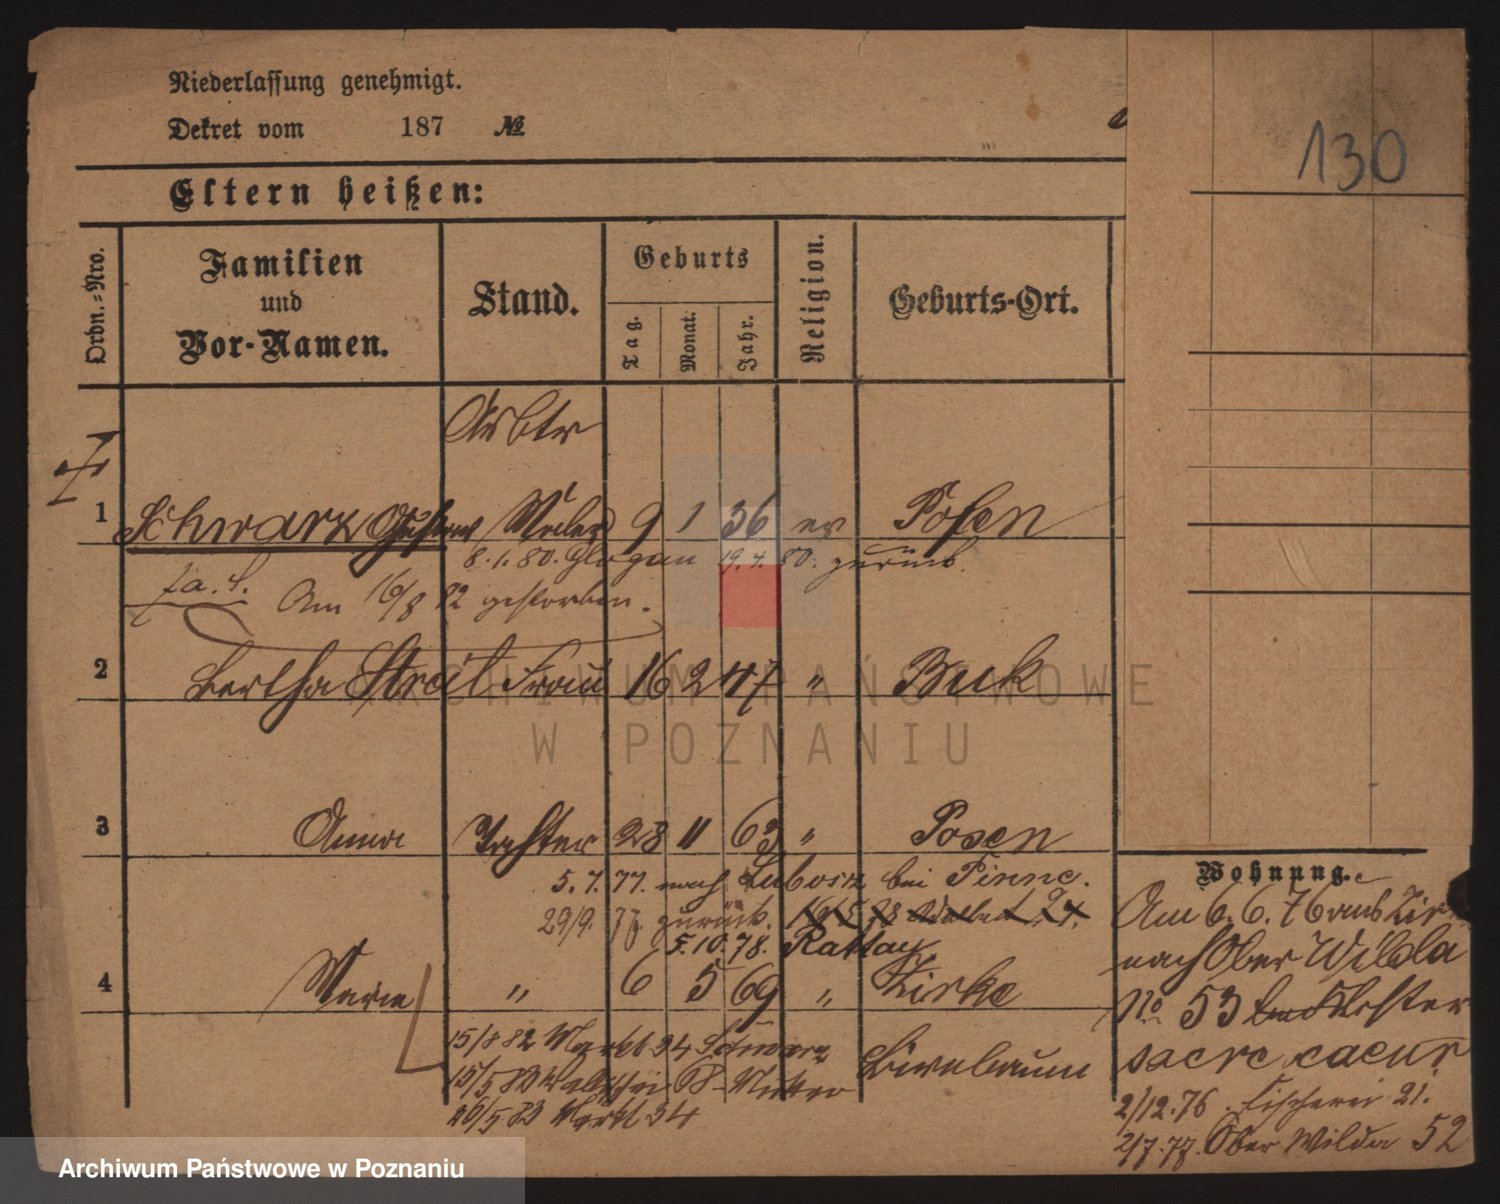 Niederlassung genehmigt.
Dekret vom 187 №
130
Eltern heißen:
Ordn.=Nro.
Familien
und
Vor-Namen.
Stand.
Geburts
Tag.
Monat.
Jahr.
Religion.
Geburts-Ort.
1 Schwarz Gustav Maler 9 1 36 ev Posen
8.1.80. Glogau 19.4.80. zurück.
Am 16/8 82 gestorben.
2 Bertha Streit Frau 16 2 47 " Buk
3 Anna Tochter 28 11 63 " Posen
5.7.77. nach Lubosz bei Pinne.
29/9. 77. zurück.
5.10.78. Rattay
4 Marie " 6 5 69 " Zirke
Birnbaum
15/8 82 Markt 34 Schwarz
15/5 83 68 Mutter
26/5 83 Markt 34
Wohnung.
Am 6.6.76 aus Zirke
nach Ober Wilda
No 53 Kloster
sacre caeur
2/12.76. Fischerei 21.
2/7.77. Ober Wilda 52
ARCHIWUM PAŃSTWOWE
W POZNANIU
Archiwum Państwowe w Poznaniu